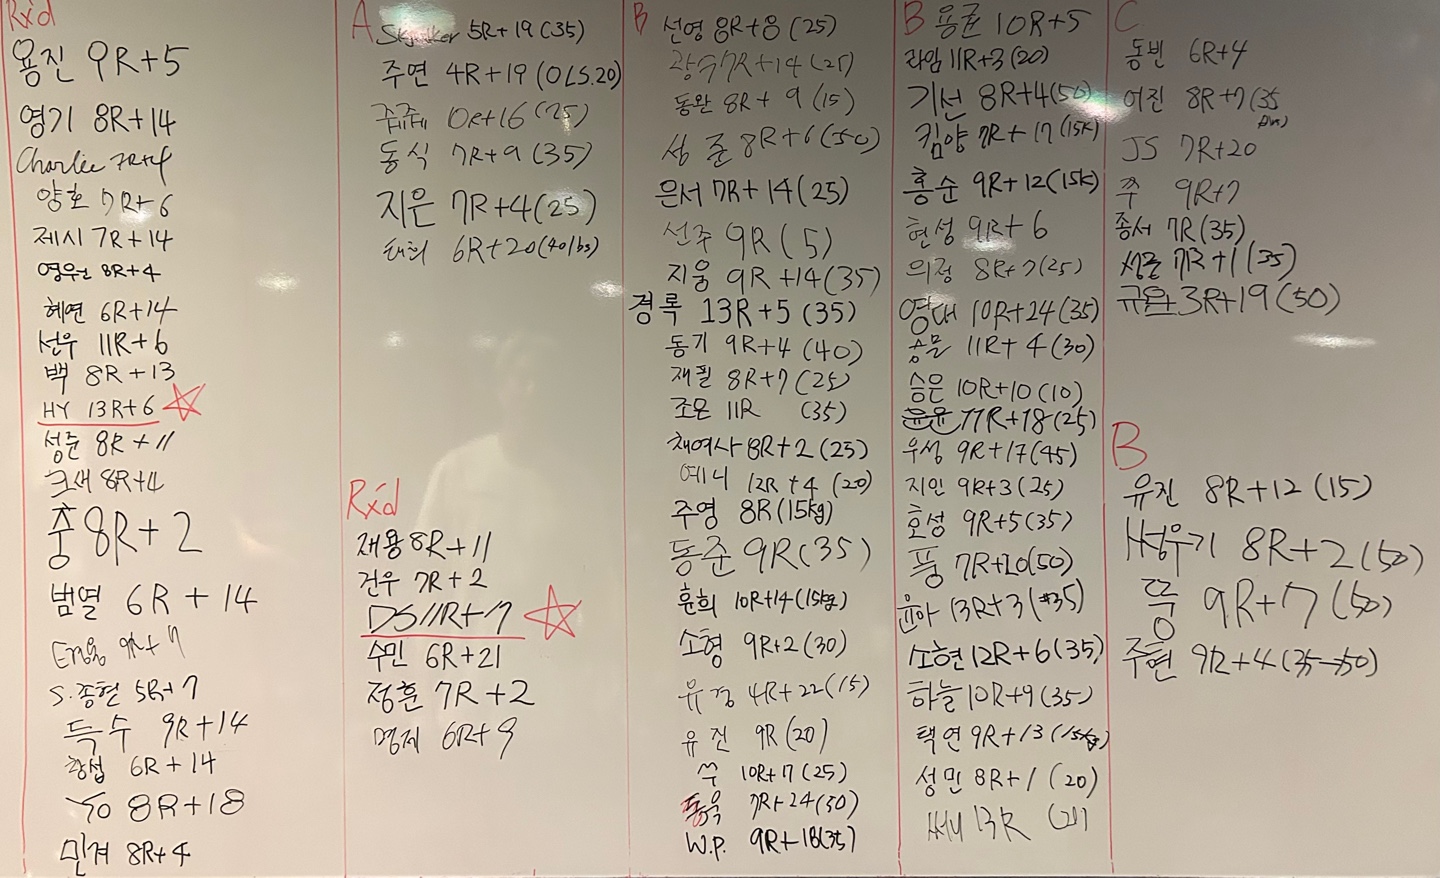 Rx'd
용진 9R+5
영기 8R+14
Charlie 7R+4
양호 7R+6
제시 7R+14
영원 8R+4
혜연 6R+14
선우 11R+6
백 8R+13
HY 13R+6
성준 8R+11
크새 8R+4
중 8R+2
범열 6R+14
9R+7
S.종헌 5R+7
득수 9R+14
창섭 6R+14
YO 8R+18
민겨 8R+4
A
5R+19 (35)
주연 4R+19 (OLS.20)
10R+16 (25)
동식 7R+9 (35)
지은 7R+4 (25)
태희 6R+20 (40lbs)
Rx'd
재용 8R+11
건우 7R+2
DS 11R+17
수민 6R+21
정훈 7R+2
명제 6R+9
B
선영 8R+8 (25)
광수 7R+14 (25)
동완 8R+9 (15)
성준 8R+6 (50)
은서 7R+14 (25)
선주 9R (5)
지웅 9R+14 (35)
경록 13R+5 (35)
동기 9R+4 (40)
재필 8R+7 (25)
조은 11R (35)
채여사 8R+2 (25)
예니 12R+4 (20)
주영 8R (15kg)
동준 9R (35)
훈희 10R+14 (15kg)
소형 9R+2 (30)
유경 4R+22 (15)
유진 9R (20)
쑤 10R+7 (25)
동욱 7R+24 (30)
W.P. 9R+18 (35)
B
용균 10R+5
라임 11R+3 (20)
기선 8R+4 (50)
킴양 7R+17 (15K)
홍순 9R+12 (15K)
현성 9R+6
의정 8R+7 (25)
영대 10R+24 (35)
승물 11R+4 (30)
승은 10R+10 (10)
윤윤 11R+18 (25)
우성 9R+17 (45)
지인 9R+3 (25)
호성 9R+5 (35)
풍 7R+20 (50)
윤아 13R+3 (#35)
소현 12R+6 (35)
하늘 10R+9 (35)
택연 9R+13 (15kg)
성민 8R+1 (20)
써니 13R (20)
C
동빈 6R+4
어진 8R+7 (35
JS 7R+20
주 9R+7
종서 7R (35)
성준 7R+1 (35)
규완 3R+19 (50)
B
유진 8R+12 (15)
8R+2 (50)
쯕 9R+7 (50)
주현 9R+4 (35→50)